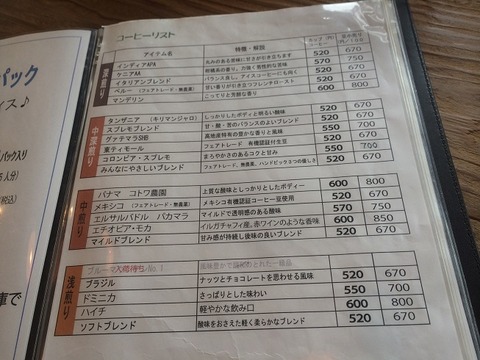 パック
イス♪
パック入り
5人分)
(税込)
庫で
コーヒーリスト
アイテム名 特徴・解説 カップ(円) コーヒー
深煎り
インディアAPA 丸みのある苦味に甘さが引き立ちます 520 670
ケニアAA 柑橘系の香り。力強く個性的な苦味 550 750
イタリアンブレンド バランス良し。アイスコーヒーにも向く 520 670
ペルー(フェアトレード・無農薬) 甘い香りが引き立つフレンチロースト 520 670
マンデリン こってりと芳醇な香り 600 800
中深煎り
タンザニア(キリマンジャロ) しっかりしたボディーと明るい酸味 520 670
スプレモブレンド 甘・酸・苦のバランスのよいブレンド 520 670
グァテマラSHB 高地産特有の豊かな香りと風味 550 700
東ティモール フェアトレード 有機認証付生豆 520 670
コロンビア・スプレモ まろやかさのあるコクと甘み 550 700
みんなにやさしいブレンド フェアトレード、無農薬、ハンドピック3つの優しさ 520 670
中煎り
パナマ コトワ農園 上質な酸味としっかりとしたボディー 600 800
メキシコ(フェアトレード・無農薬) メキシコ有機認証コーヒー豆使用 520 670
エルサルバドル パカマラ マイルドで透明感のある酸味 570 750
エチオピア・モカ イルガチャフィ産。赤ワインのような香味 600 850
マイルドブレンド 甘み感が持続し後味の良いブレンド 520 670
浅煎り
入荷待ち No.1
ブラジル ナッツとチョコレートを思わせる風味 520 670
ドミニカ さっぱりとした味わい 550 700
ハイチ 軽やかな飲み口 600 800
ソフトブレンド 酸味をおさえた軽く柔らかなブレンド 520 670